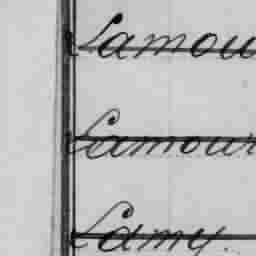 Lamou
Lamour
Lamy.